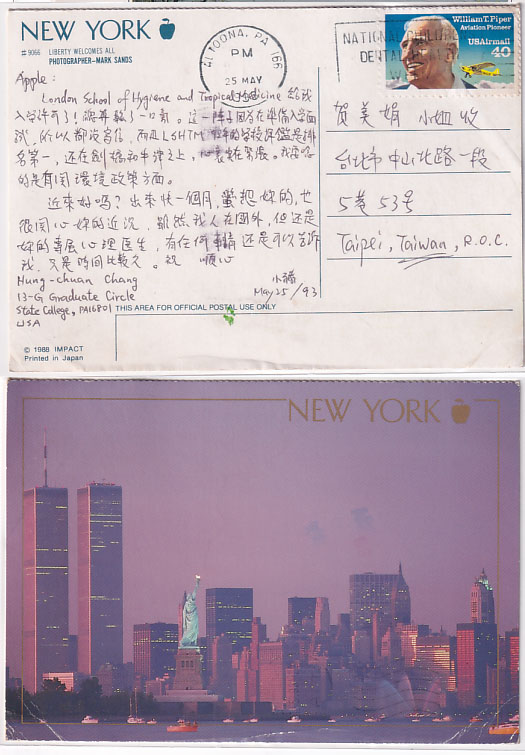 NEW YORK
# 9066 LIBERTY WELCOMES ALL
PHOTOGRAPHER-MARK SANDS
ALTOONA, PA 166
PM
25 MAY
NATIONAL
DENTAL
William T. Piper
Aviation Pioneer
USAirmail
40
Apple:
London School of Hygiene and Tropical Medicine 給我
入學許可了! 鬆了一口氣。這一陣子因為在準備入學面
試，所以都沒寫信，而且LSHTM 的學校評鑑是排
名第一，還在劍橋和牛津之上，緊張。我
的是有關環境政策方面。
近來好嗎? 出來快一個月，蠻想妳的，也
很關心妳的近況，雖然我人在國外，但還是
妳的專屬心理醫生，有任何事情還是可以告訴
我，只是時間比較久。祝 順心
小
May 25/93
Hung-chuan Chang
13-G Graduate Circle
State College, PA16801
USA
賀美娟 小姐收
台北市中山北路一段
5巷53号
Taipei, Taiwan, R.O.C.
THIS AREA FOR OFFICIAL POSTAL USE ONLY
© 1988 IMPACT
Printed in Japan
NEW YORK